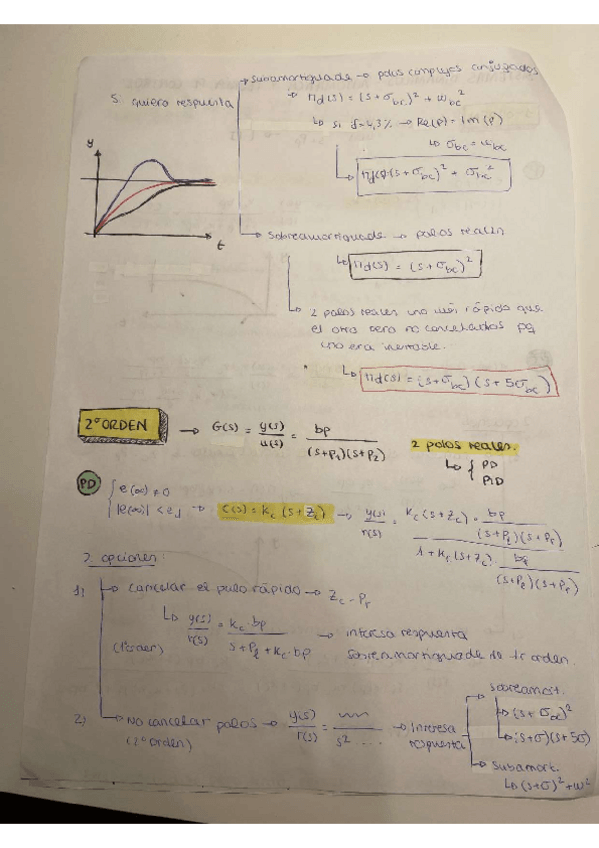 Si quiero respuesta
→ Subamortiguada → polos complejos conjugados
→ Πd(s) = (s+σbc)² + ωbc²
↳ si δ=4,3% → Re(p) = Im(p)
↳ σbc = ωbc
↳ Πd(s)=(s+σbc)² + σbc²
y
t
↳ Sobreamortiguada → polos reales
↳ Πd(s) = (s+σbc)²
↳ 2 polos reales uno más rápido que
el otro pero no cancelarlos pq
uno era inestable.
* ↳ Πd(s) = (s+σbc)(s+5σbc)
2º ORDEN → G(s) = y(s)/u(s) = bp/((s+p₁)(s+p₂))
2 polos reales.
↳ { PD
PID
PD { e(∞) ≠ 0
|e(∞)| < → C(s) = Kc (s+Zc) → y(s)/r(s) = (Kc(s+Zc) · bp/((s+pl)(s+pr)))/(1+Kc(s+Zc) · bp/((s+pl)(s+pr)))
2 opciones:
1) → Cancelar el polo rápido → Zc = pr
↳ y(s)/r(s) = Kc·bp/(s+pl+Kc·bp) → interesa respuesta
(1º orden) sobreamortiguada de 1r orden.
2) → No cancelar polos → y(s)/r(s) = /s² ... → Interesa
(2º orden) respuesta
sobreamort.
→ (s+σbc)²
→ (s+σ)(s+5σ)
subamort.
↳ (s+σ)²+ω²